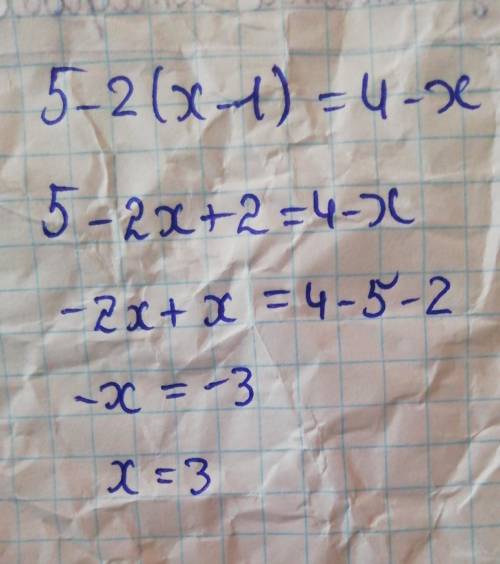 5-2(x-1)=4-x
5-2x+2=4-x
-2x+x=4-5-2
-x=-3
x=3